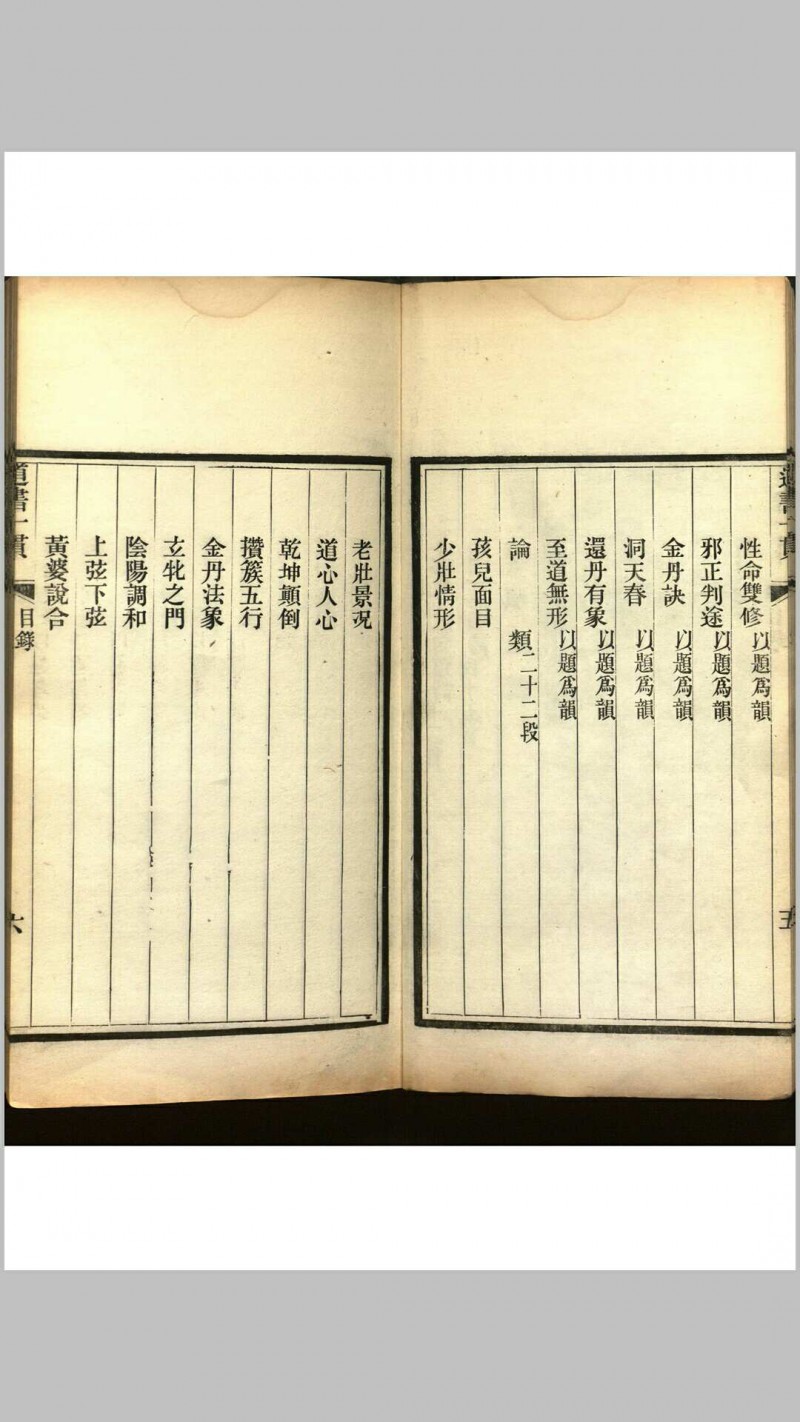 性命雙修以題爲韻
邪正判途以題爲韻
金丹訣以題爲韻
洞天春以題爲韻
還丹有象以題爲韻
至道無形以題爲韻
論類二十二段
孩兒面目
少壯情形
老壯景況
道心人心
乾坤顛倒
攢簇五行
金丹法象
玄牝之門
陰陽調和
上弦下弦
黃婆說合
道書一貫
目錄
六
道書一貫
五